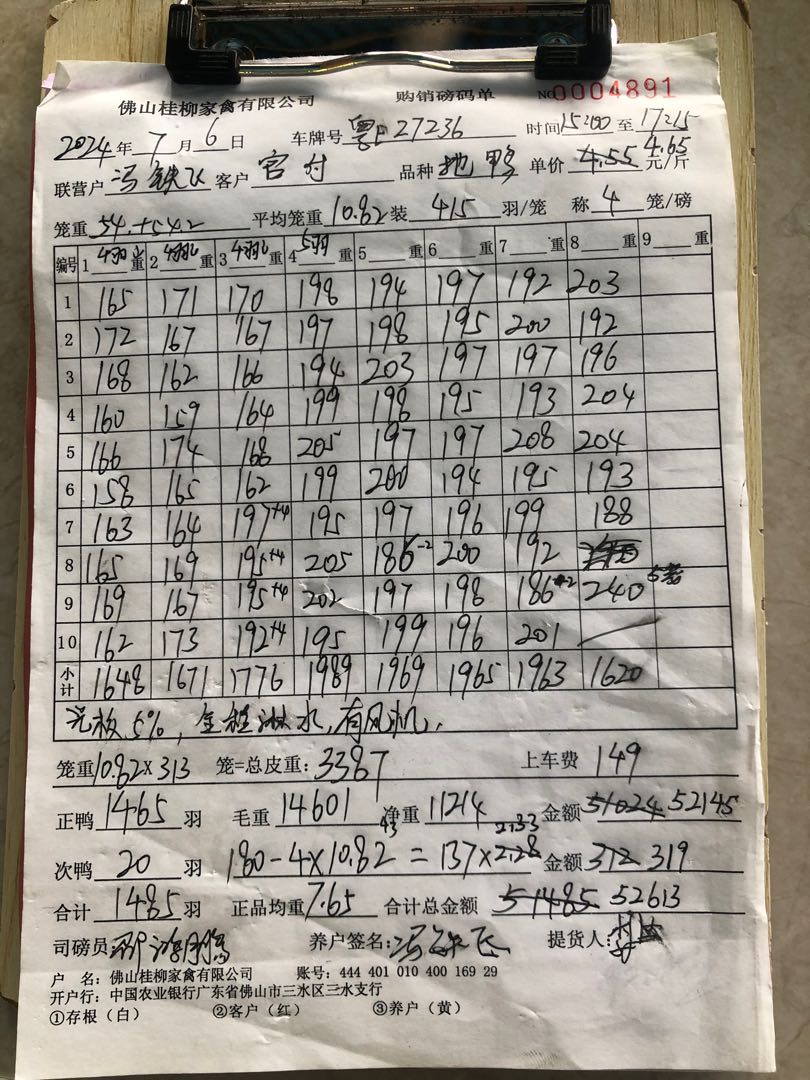 佛山桂柳家禽有限公司 购销磅码单 NO 0004891
2024年7月6日 车牌号 粤 27236 时间15:00至17:15
联营户 冯铁飞 客户 宫付 品种 地鸭 单价 4.55 4.65 元/斤
笼重 54.+54.2 平均笼重 10.82 装 4/5 羽/笼 称 4 笼/磅
编号 1 4羽 重 2 4羽 重 3 4羽 重 4 5羽 重 5 重 6 重 7 重 8 重 9 重
1 165 171 170 198 194 197 192 203
2 172 167 167 197 198 195 200 192
3 168 162 166 194 203 197 197 196
4 160 159 164 199 198 195 193 204
5 166 174 168 205 197 197 208 204
6 158 165 162 199 200 194 195 193
7 163 164 197+4 195 197 196 199 188
8 165 169 195+4 205 186-2 200 192
9 169 167 195+4 202 197 198 186-2 240 5笼
10 162 173 192+4 195 199 196 201
小计 1648 1671 1776 1989 1969 1965 1963 1620
光板5%,全程淋水,有风机.
笼重10.82×313 笼=总皮重:3387 上车费 149
正鸭 1465 羽 毛重 14601 净重 11214 金额 51024 52145
次鸭 20 羽 180-4×10.82 = 43 137×2.28 2.33 金额 312 319
合计 1485 羽 正品均重 7.65 合计总金额 51485 52613
司磅员 养户签名:冯铁飞 提货人:
户 名:佛山桂柳家禽有限公司 账号:444 401 010 400 169 29
开户行:中国农业银行广东省佛山市三水区三水支行
①存根(白) ②客户(红) ③养户(黄)